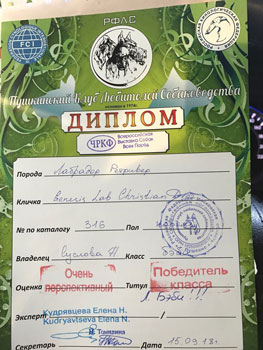 РФЛС
FCI
Пушкинский Клуб Любителей Собаководства
ДИПЛОМ
ЧРКФ
Всероссийская
Выставка Собак
Всех Пород
Порода Лабрадор Ретривер
Кличка Lab Christian
№ по каталогу 316 Пол
Владелец Суслова Н Класс
Оценка Очень перспективный Титул Победитель класса
Л. Бэби!!!
Эксперт Кудрявцева Елена Н.
Kudryavtseva Elena N.
Секретарь Дата 15.09.18г.